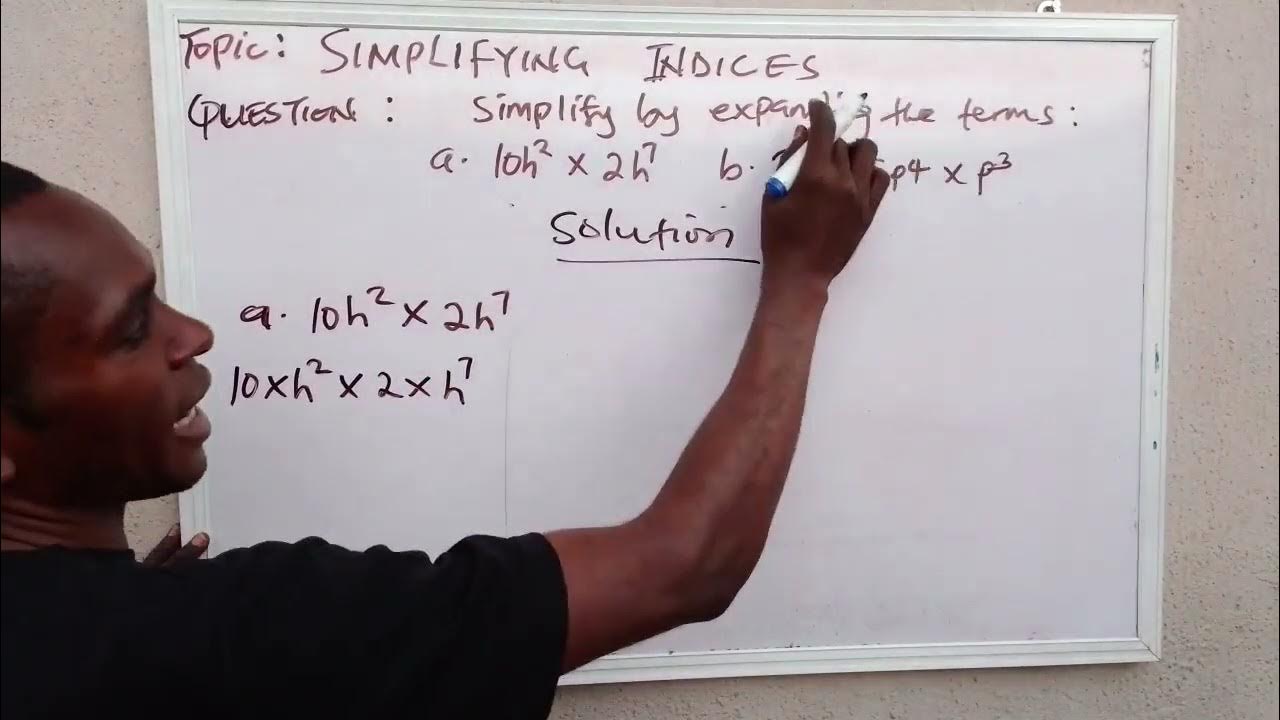 Topic: SIMPLIFYING INDICES
QUESTION: Simplify by expanding the terms:
a. 10h² × 2h⁷ b. p⁴ × p³
Solution
a. 10h² × 2h⁷
10×h² × 2 × h⁷